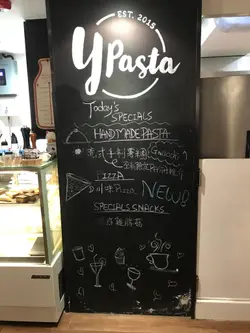 EST. 2015
YPasta
Today's
SPECIALS
HANDMADE PASTA
意式手制薯糰 (Gnocchi)
PIZZA
Pizza NEW!
SPECIALS SNACKS